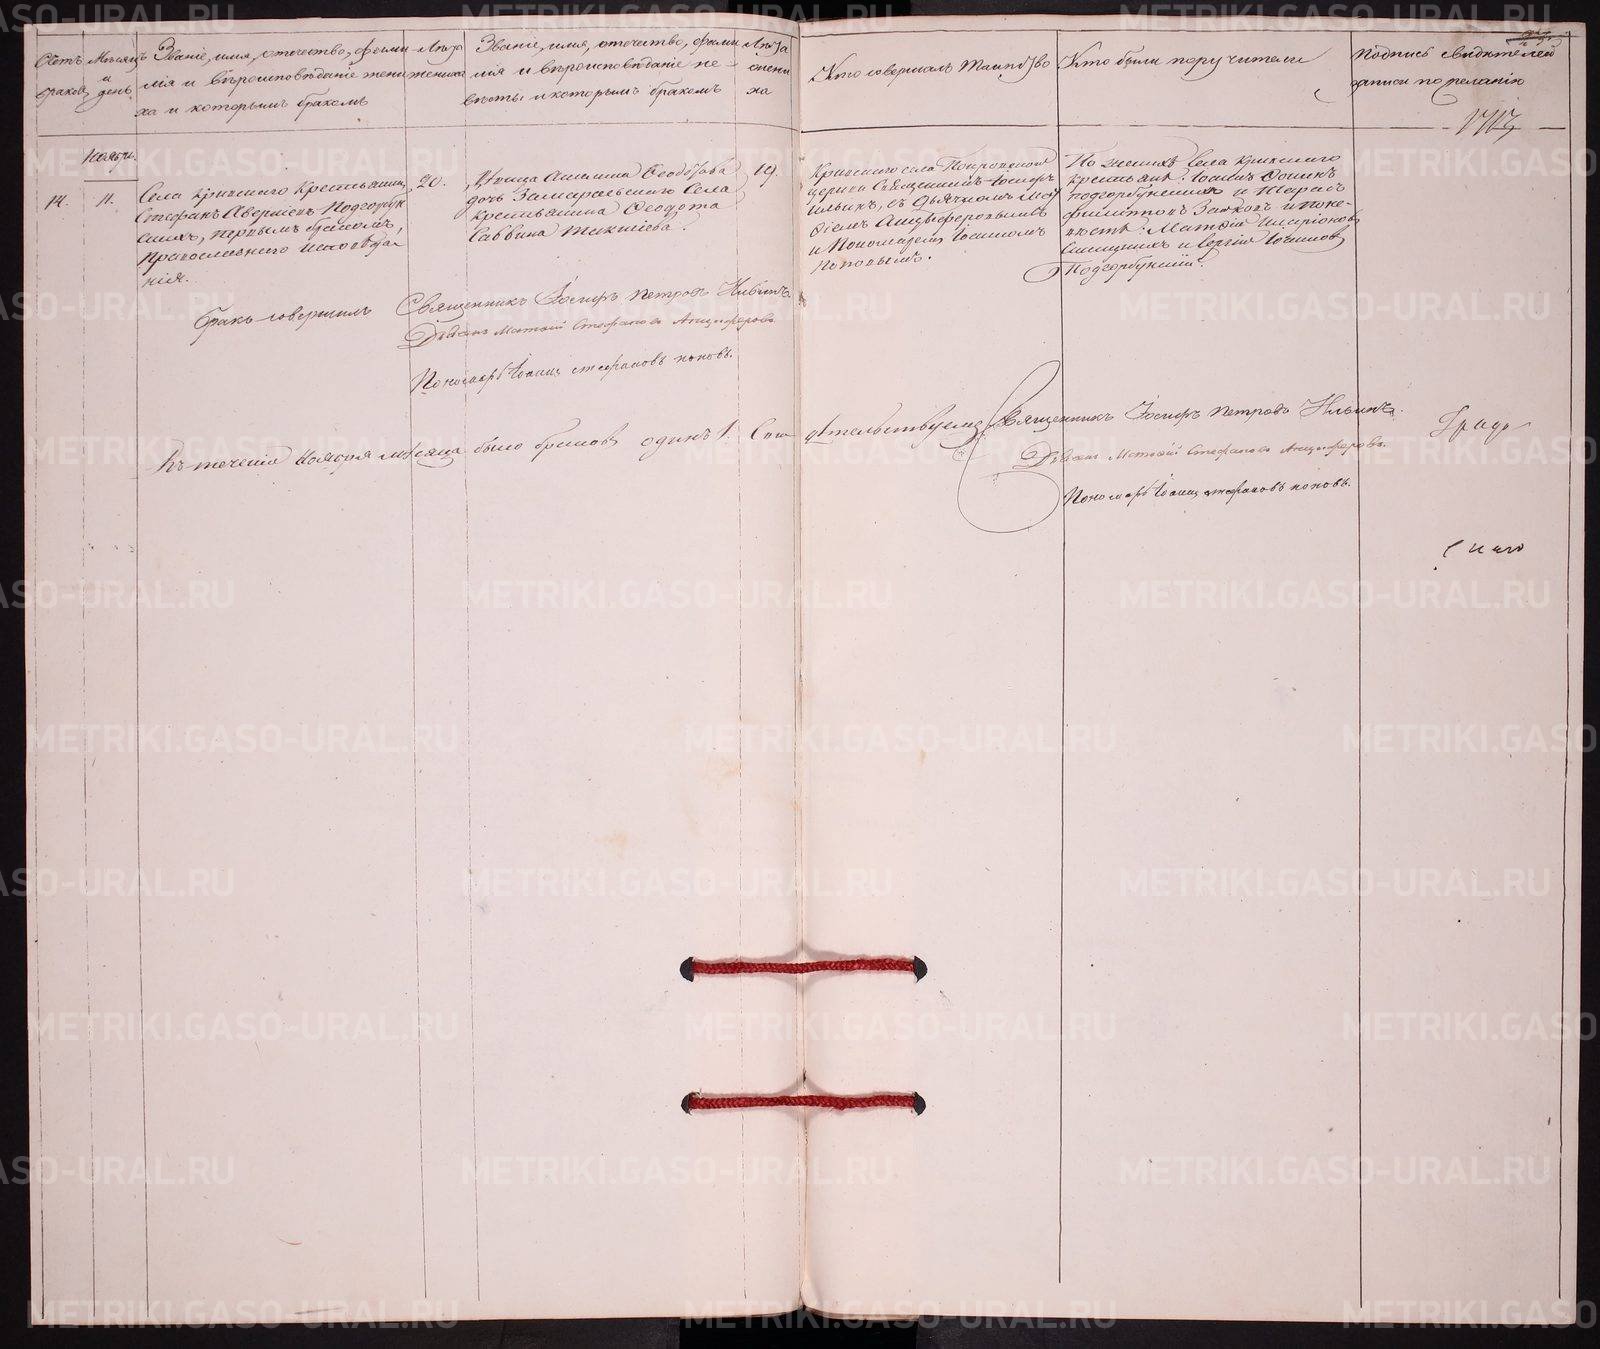 Счетъ браковъ
Мѣсяцъ и день
Званіе, имя, отчество, фами-
лія и вѣроисповѣданіе жени-
ха и которымъ бракомъ
Лѣта
жениха
Званіе, имя, отчество, фами-
лія и вѣроисповѣданіе не-
вѣсты и которымъ бракомъ
Лѣта
Кто совершалъ таинство
Кто были поручители
Подпись свидѣтелей
записи по желанію
Ноябрь
14.
11.
Села Кривского крестьянинъ
Стефанъ Аверкіевъ Подгорбун
скихъ, первымъ бракомъ,
Православнаго исповѣда-
нія.
20.
дочь Замараевскаго Села
крестьянина Ѳеодота
Саввина
19.
Кривского села Покровской
церкви Священникъ Іосифъ
Ильинъ, съ Дьячкомъ Мат
ѳіемъ Анцыферовымъ
и Пономаремъ Іоанномъ
Поповымъ.
По женихѣ Села Кривского
крестьяне: Іоаннъ
Подгорбунскихъ и
Филиппов и по не-
вѣстѣ: Матѳій Иларіоновъ
и Сергій
Подгорбунскій.
Бракъ совершилъ
Священникъ Іосифъ Петровъ Ильинъ.
Дьячекъ Матѳій Стефановъ Анцыферовъ
Пономарь Іоаннъ Стефановъ Поповъ.
Въ теченіи Ноября мѣсяца было браковъ одинъ 1. Сви
дѣтельствуемъ Священникъ Іосифъ Петровъ Ильинъ.
Дьячекъ Матѳій Стефановъ Анцыферовъ.
Пономарь Іоаннъ Стефановъ Поповъ.
Градо
METRIKI.GASO-URAL.RU